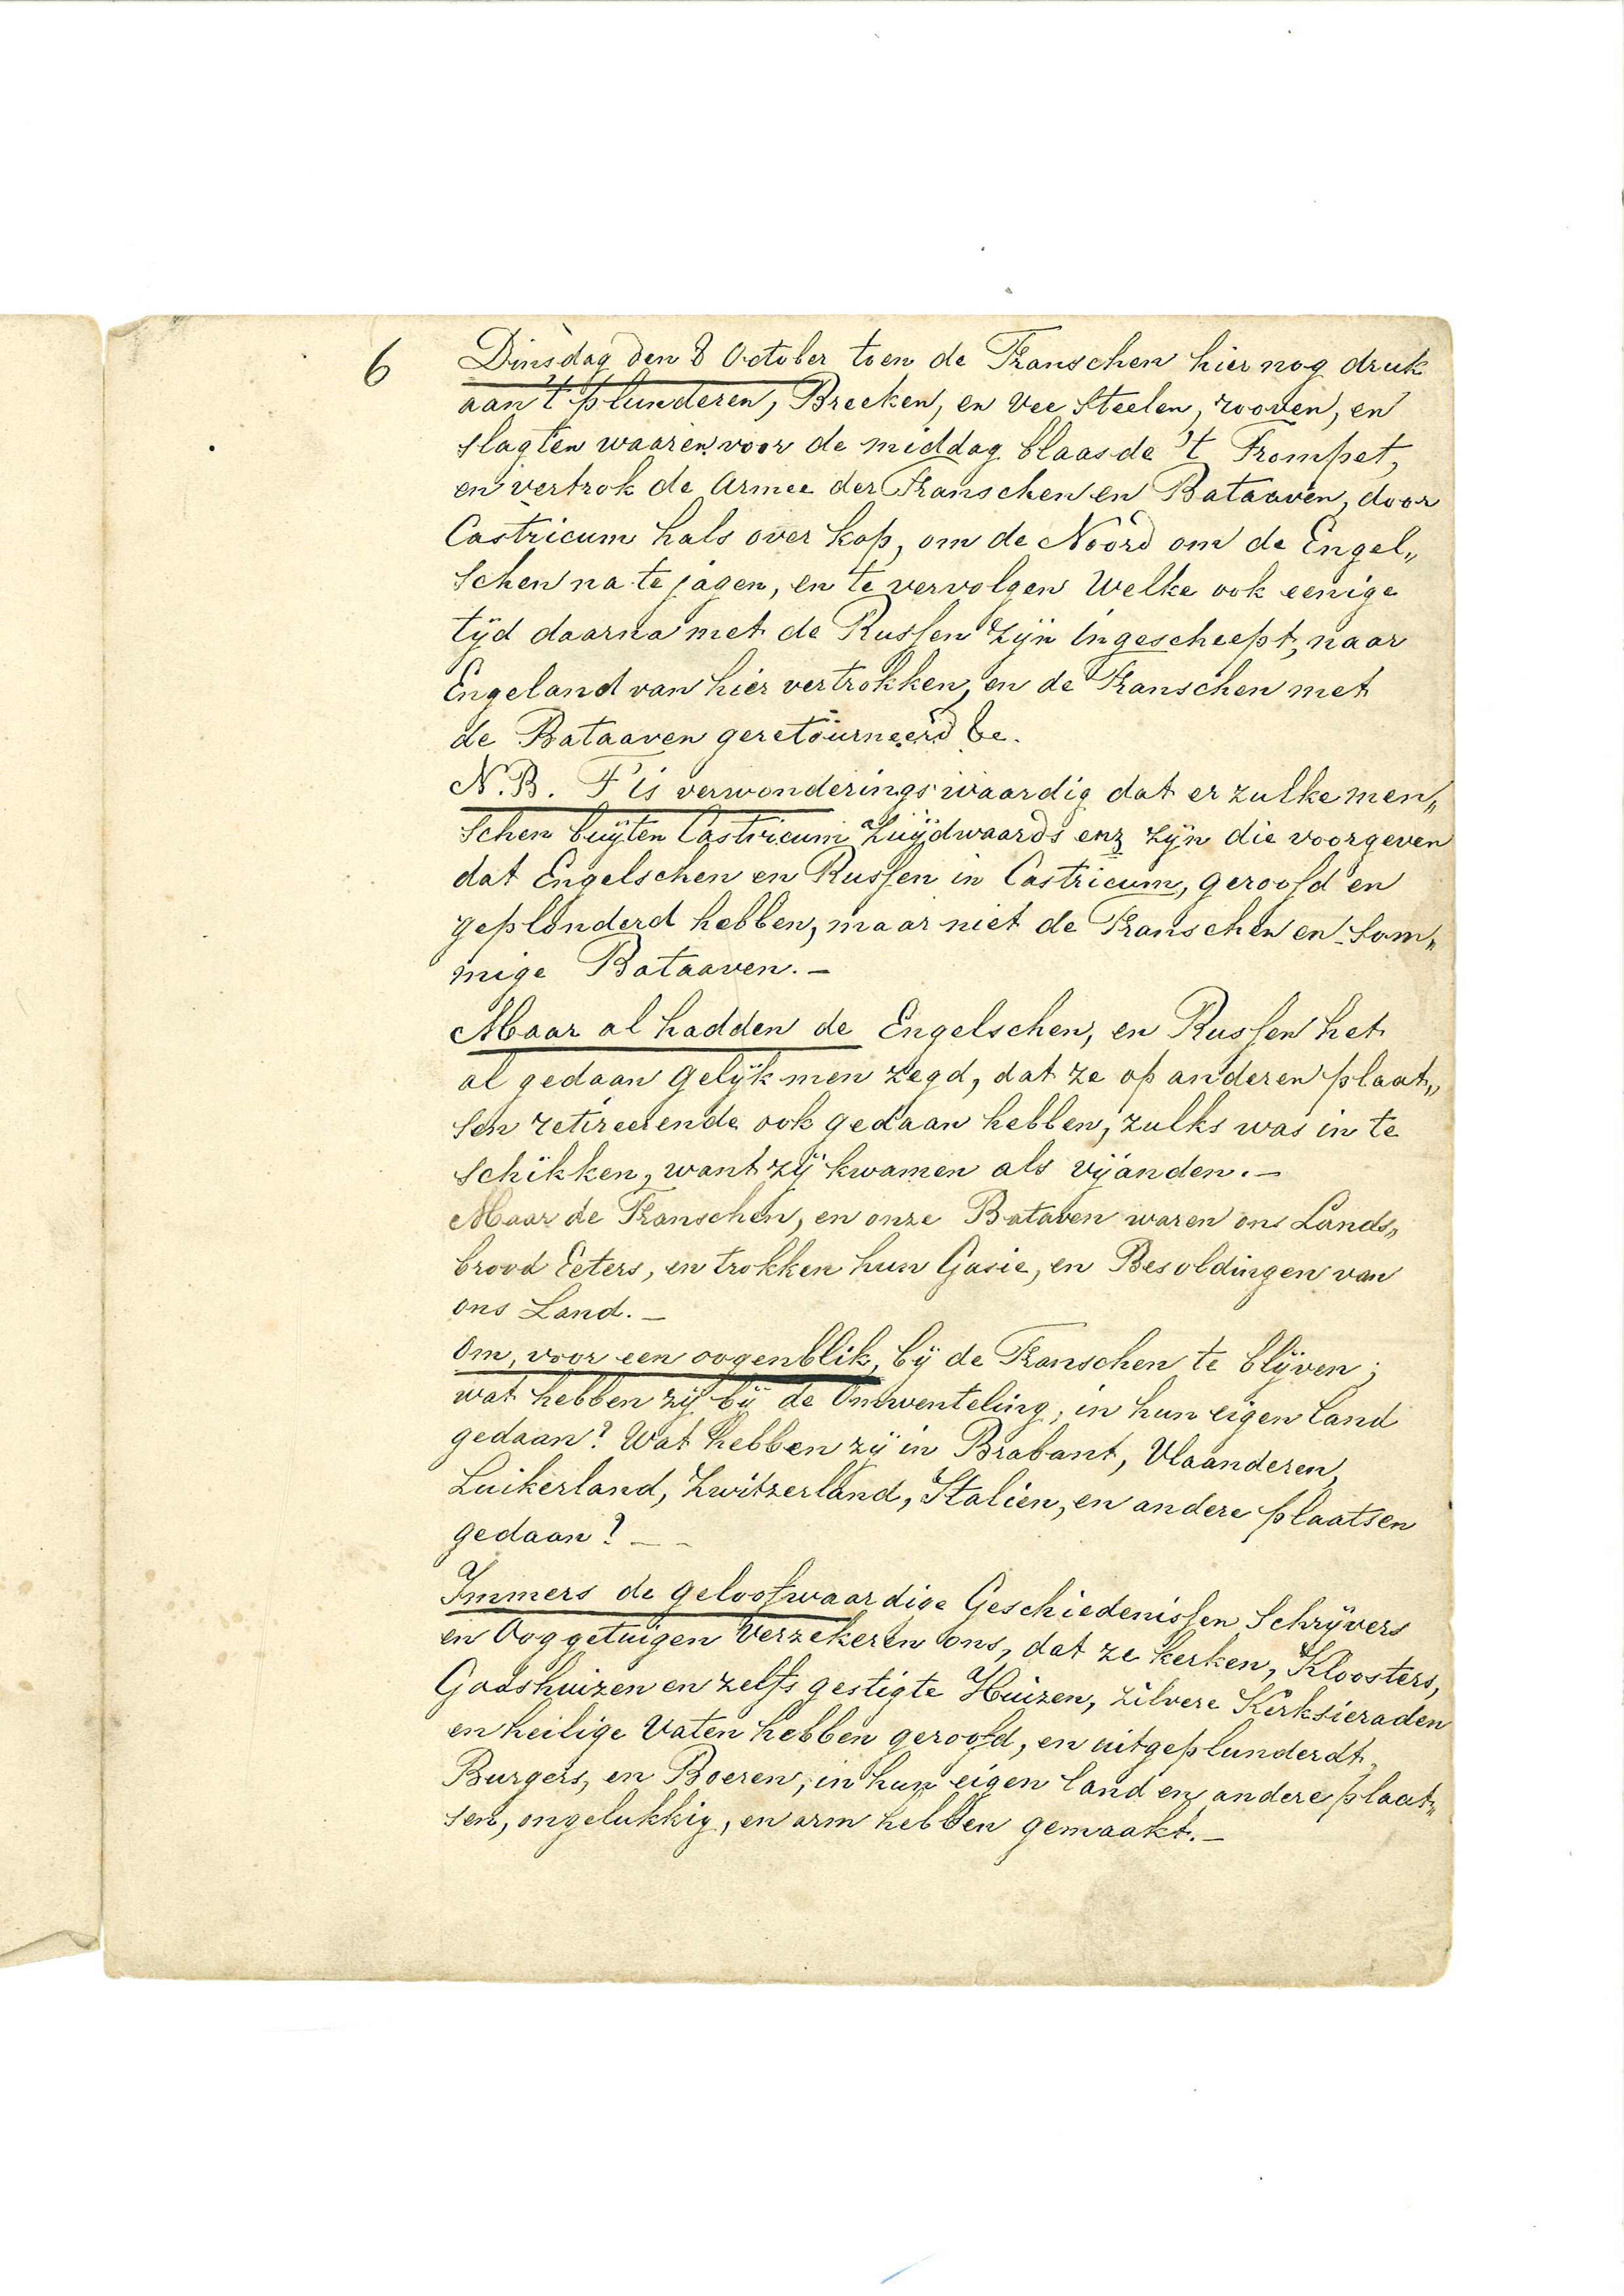 6 Dinsdag den 8 October toen de Franschen hier nog druk
aan 't plunderen, Breeken, en Vee Steelen, rooven, en
slagten waaren voor de middag blaasde 't Trompet,
en vertrok de Armee der Franschen en Bataaven, door
Castricum hals over kop, om de Noord om de Engel„
schen na te jagen, en te vervolgen Welke ook eenige
tijd daarna met de Russen zijn ingescheept, naar
Engeland van hier vertrokken, en de Franschen met
de Bataaven geretourneerd &c.
N.B. T'is verwonderingswaardig dat er zulke men„
schen buÿten Castricum Zuÿdwaards enz zijn die voorgeven
dat Engelschen en Russen in Castricum, geroofd en
geplonderd hebben, maar niet de Franschen en som„
mige Bataaven. —
Maar al hadden de Engelschen, en Russen het
al gedaan gelijk men zegd, dat ze op anderen plaat„
sen retireerende ook gedaan hebben, zulks was in te
schikken, want zij kwamen als vijanden. —
Maar de Franschen, en onze Bataven waren ons Lands„
brood Eeters, en trokken hun Gasie, en Besoldingen van
ons Land. —
Om, voor een oogenblik, bij de Franschen te blijven;
wat hebben zij bij de Omwenteling, in hun eigen land
gedaan? Wat hebben zij in Brabant, Vlaanderen,
Luikerland, Zwitzerland, Italien, en andere plaatsen
gedaan? — —
Immers de geloofwaardige Geschiedenissen Schrijvers
en Ooggetuigen Verzekeren ons, dat ze kerken, Kloosters,
Godshuizen en zelfs gestigte Huizen, zilvere Kerksieraden
en heilige Vaten hebben geroofd, en uitgeplunderdt,
Burgers, en Boeren, in hun eigen land en andere plaat„
sen, ongelukkig, en arm hebben gemaakt. —